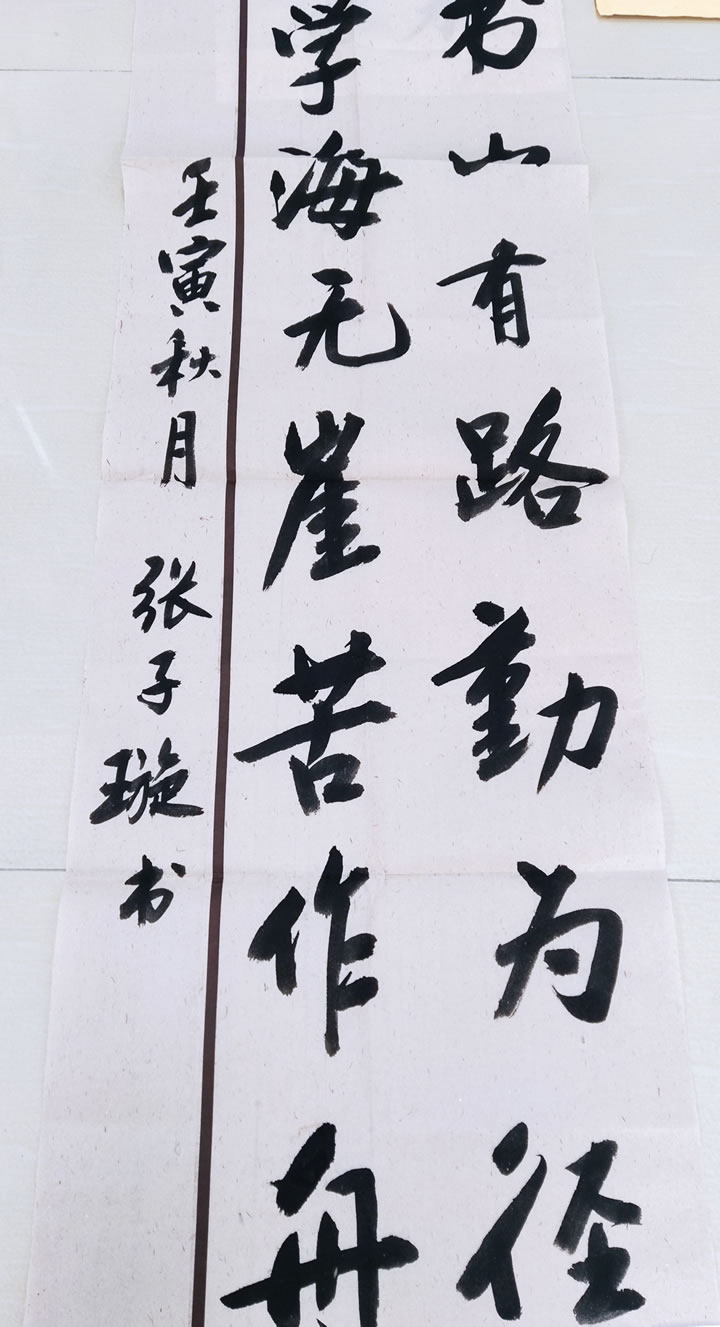 书山有路勤为径
学海无崖苦作舟
壬寅秋月 张子璇书